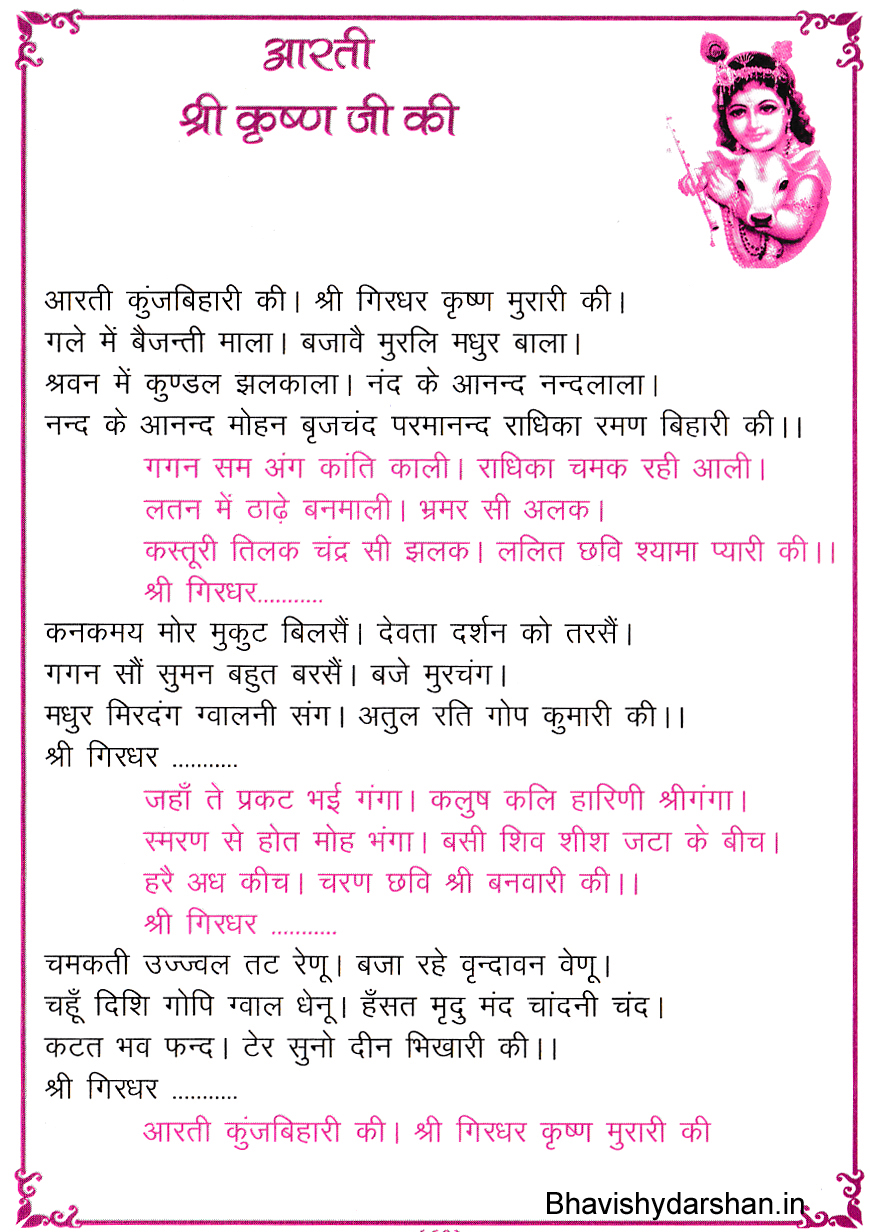 आरती
श्री कृष्ण जी की
आरती कुंजबिहारी की। श्री गिरधर कृष्ण मुरारी की।
गले में बैजन्ती माला। बजावै मुरलि मधुर बाला।
श्रवन में कुण्डल झलकाला। नंद के आनन्द नन्दलाला।
नन्द के आनन्द मोहन बृजचंद परमानन्द राधिका रमण बिहारी की।।
गगन सम अंग कांति काली। राधिका चमक रही आली।
लतन में ठाढ़े बनमाली। भ्रमर सी अलक।
कस्तूरी तिलक चंद्र सी झलक। ललित छवि श्यामा प्यारी की।।
श्री गिरधर...........
कनकमय मोर मुकुट बिलसैं। देवता दर्शन को तरसैं।
गगन सौं सुमन बहुत बरसैं। बजे मुरचंग।
मधुर मिरदंग ग्वालनी संग। अतुल रति गोप कुमारी की।।
श्री गिरधर ...........
जहाँ ते प्रकट भई गंगा। कलुष कलि हारिणी श्रीगंगा।
स्मरण से होत मोह भंगा। बसी शिव शीश जटा के बीच।
हरै अध कीच। चरण छवि श्री बनवारी की।।
श्री गिरधर ...........
चमकती उज्ज्वल तट रेणू। बजा रहे वृन्दावन वेणू।
चहूँ दिशि गोपि ग्वाल धेनू। हँसत मृदु मंद चांदनी चंद।
कटत भव फन्द। टेर सुनो दीन भिखारी की।।
श्री गिरधर ...........
आरती कुंजबिहारी की। श्री गिरधर कृष्ण मुरारी की
Bhavishydarshan.in